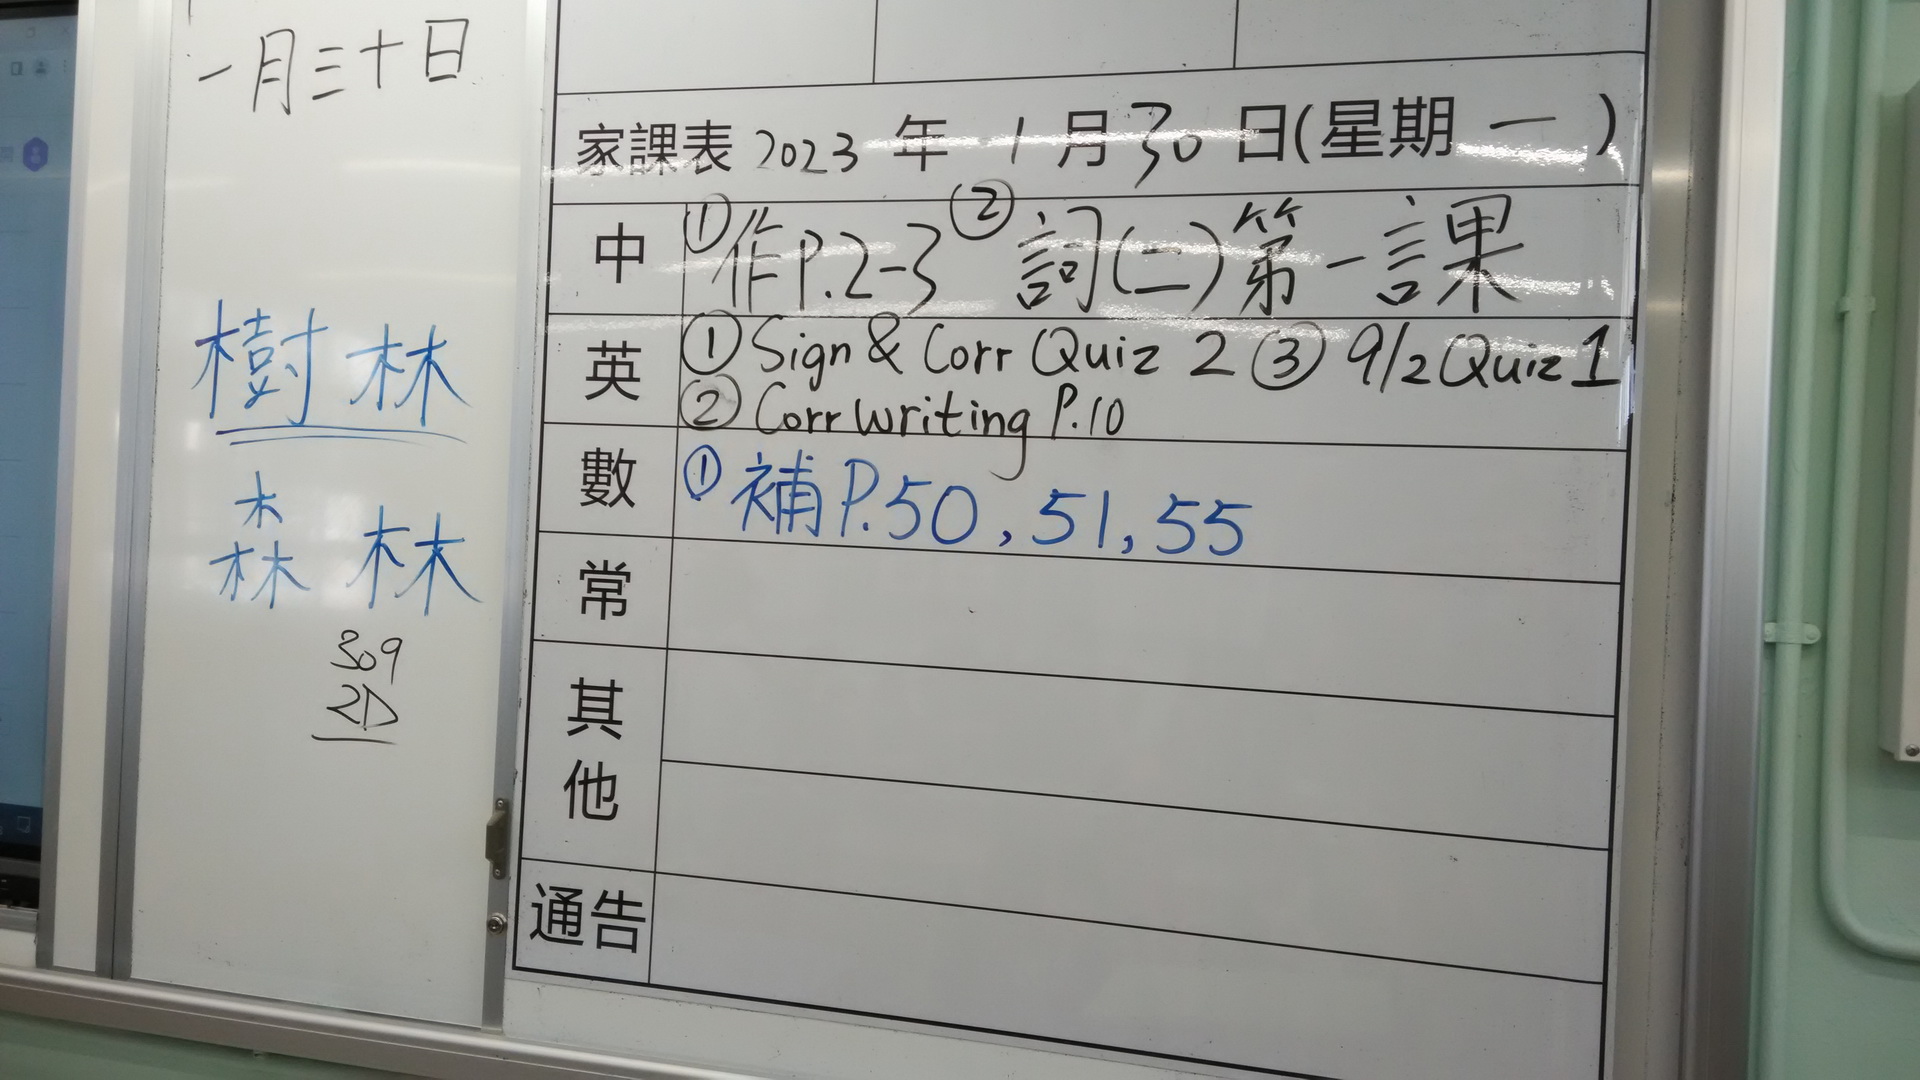 一月三十日
樹林
森林
309
2D
家課表 2023 年 1 月 30 日(星期 一 )
中 ①作P.2-3 ②詞(二)第一課
英 ①Sign & Corr Quiz 2 ③ 9/2 Quiz 1
② Corr writing P.10
數 ①補P.50,51,55
常
其他
通告